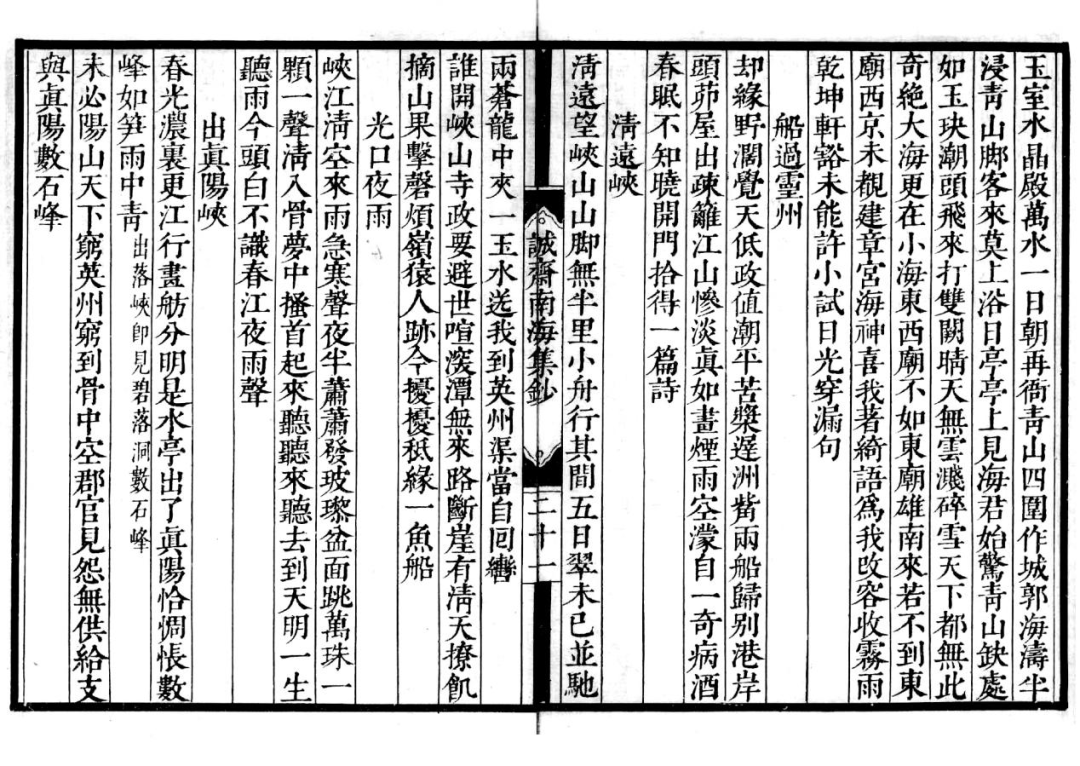 玉室水晶殿萬水一日朝再衙靑山四圍作城郭海濤半
浸靑山脚客來莫上浴日亭亭上見海君始驚靑山缺處
如玉玦潮頭飛來打雙闕晴天無雲濺碎雪天下都無此
奇絶大海更在小海東西廟不如東廟雄南來若不到東
廟西京未覩建章宮海神喜我著綺語爲我改容收霧雨
乾坤軒豁未能許小試日光穿漏句
船過靈州
却緣野濶覺天低政値潮平苦槳遲洲觜兩船歸别港岸
頭茆屋出疎籬江山慘淡眞如畫煙雨空濛自一奇病酒
春眠不知曉開門拾得一篇詩
淸遠峽
淸遠望峽山山脚無半里小舟行其間五日翠未已並馳
誠齋南海集鈔
二十一
兩蒼龍中夾一玉水送我到英州渠當自回轡
誰開峽山寺政要避世喧深潭無來路斷崖有淸天撩飢
摘山果擊磬煩嶺猿人跡今擾擾秪緣一魚船
光口夜雨
峽江淸空來雨急寒聲夜半蕭蕭發玻瓈盆面跳萬珠一
顆一聲淸入骨夢中搔首起來聽聽來聽去到天明一生
聽雨今頭白不識春江夜雨聲
出眞陽峽
春光濃裏更江行畫舫分明是水亭出了眞陽恰惆悵數
峰如笋雨中靑出落峽卽見碧落洞數石峰
未必陽山天下窮英州窮到骨中空郡官見怨無供給支
與眞陽數石峰